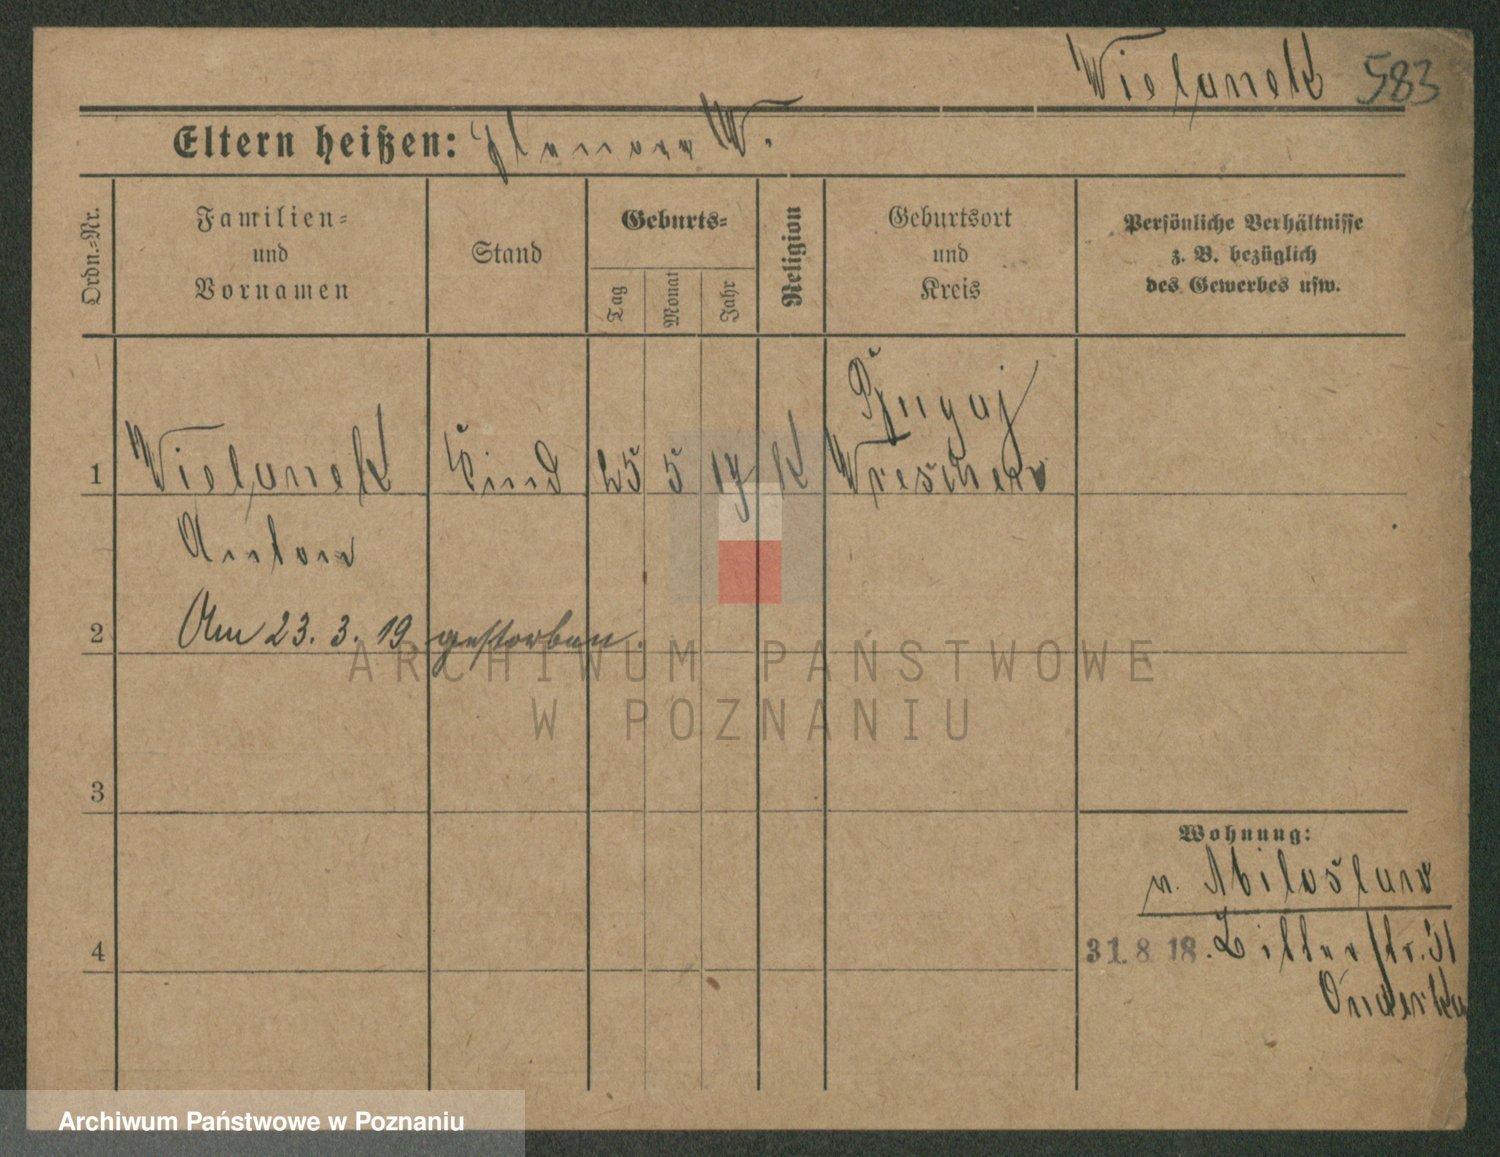 Wielanek 583
Eltern heißen: W.
Ordn.=Nr.
Familien=
und
Vornamen
Stand
Geburts=
Tag
Monat
Jahr
Religion
Geburtsort
und
Kreis
Persönliche Verhältnisse
z. B. bezüglich
des Gewerbes usw.
1 Wielanek Kind 25 5 17 K Wreschen
Anton
2 Am 23. 3. 19 gestorben.
3
4
Wohnung:
n. Miloslaw
31. 8. 18. Bitterstr. 31
ARCHIWUM PAŃSTWOWE
W POZNANIU
Archiwum Państwowe w Poznaniu